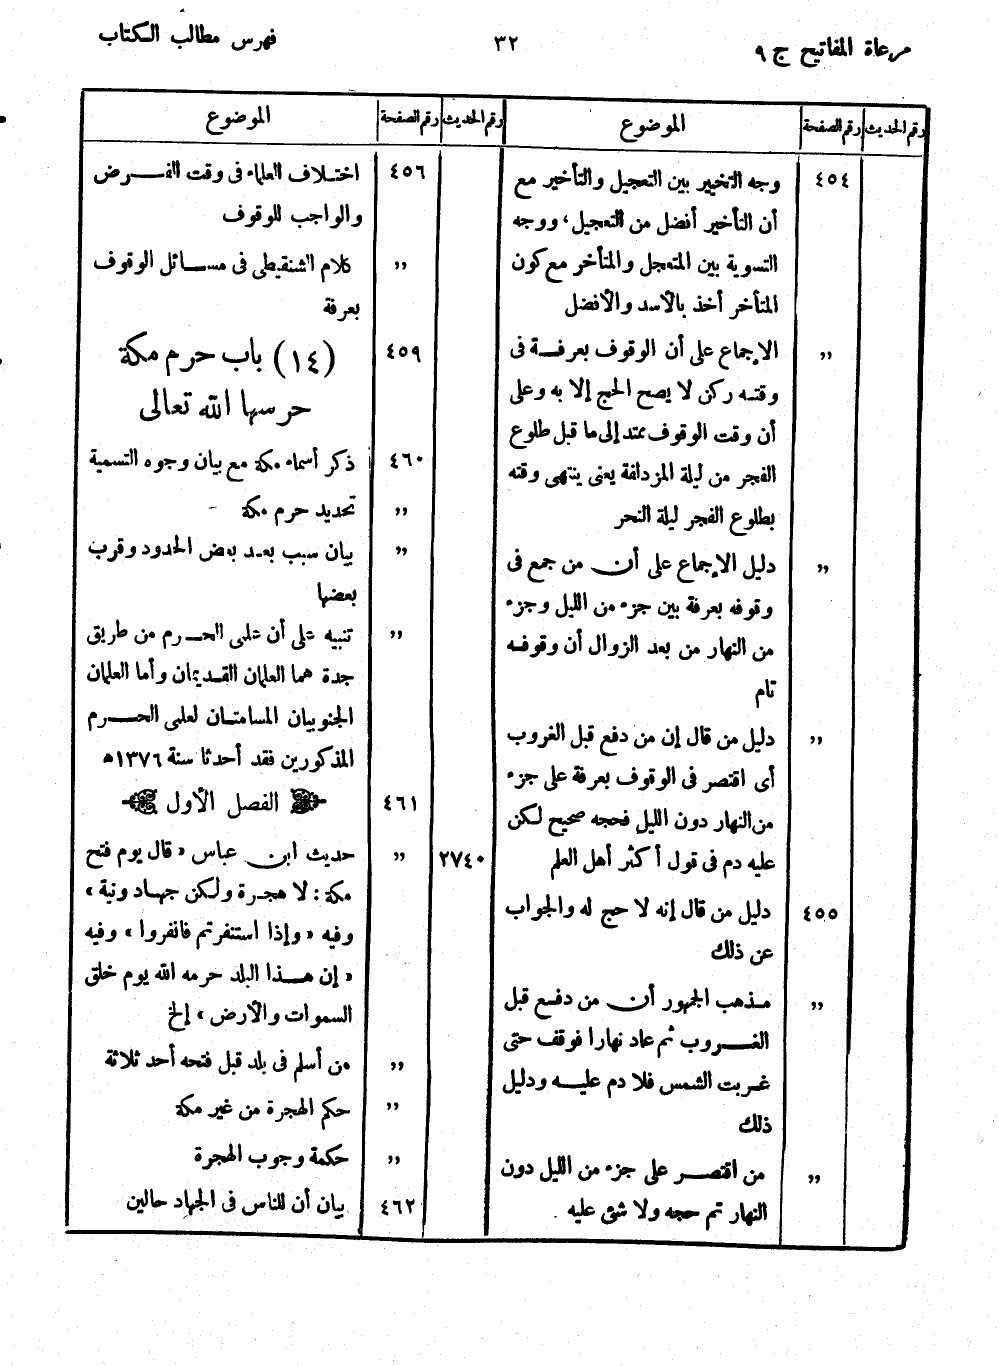 مرعاة المفاتيح ج ٩
٣٢
فهرس مطالب الكتاب
رقم الحديث رقم الصفحة الموضوع
٤٥٤ وجه التخيير بين التعجيل والتأخير مع
أن التأخير أفضل من التعجيل، ووجه
التسوية بين المتعجل والمتأخر مع كون
المتأخر أخذ بالأسد والأفضل
,, الإجماع على أن الوقوف بعرفة فى
وقته ركن لا يصح الحج إلا به وعلى
أن وقت الوقوف يمتد إلى ما قبل طلوع
الفجر من ليلة المزدلفة يعنى ينتهى وقته
بطلوع الفجر ليلة النحر
,, دليل الإجماع على أن من جمع فى
وقوفه بعرفة بين جزء من الليل وجزء
من النهار من بعد الزوال أن وقوفه
تام
,, دليل من قال إن من دفع قبل الغروب
أى اقتصر فى الوقوف بعرفة على جزء
من النهار دون الليل فحجه صحيح لكن
عليه دم فى قول أكثر أهل العلم
٤٥٥ دليل من قال إنه لا حج له والجواب
عن ذلك
,, مذهب الجمهور أن من دفع قبل
الغروب ثم عاد نهارا فوقف حتى
غربت الشمس فلا دم عليه ودليل
ذلك
,, من اقتصر على جزء من الليل دون
النهار تم حجه ولا شئ عليه
رقم الحديث رقم الصفحة الموضوع
٤٥٦ اختلاف العلماء فى وقت الفرض
والواجب للوقوف
,, كلام الشنقيطى فى مسائل الوقوف
بعرفة
٤٥٩ (١٤) باب حرم مكة
حرسها الله تعالى
٤٦٠ ذكر أسماء مكة مع بيان وجوه التسمية
,, تحديد حرم مكة
,, بيان سبب بعد بعض الحدود وقرب
بعضها
,, تنبيه على أن علمى الحرم من طريق
جدة هما العلمان القديمان وأما العلمان
الجنوبيان المسامتان لعلمى الحرم
المذكورين فقد أحدثا سنة ١٣٧٦ھ
٤٦١ الفصل الأول
٢٧٤٠ ,, حديث ابن عباس « قال يوم فتح
مكة : لا هجرة ولكن جهاد ونية »
وفيه « وإذا استنفرتم فانفروا » وفيه
« إن هذا البلد حرمه الله يوم خلق
السموات والأرض » إلخ
,, من أسلم فى بلد قبل فتحه أحد ثلاثة
,, حكم الهجرة من غير مكة
,, حكمة وجوب الهجرة
٤٦٢ بيان أن للناس فى الجهاد حالين